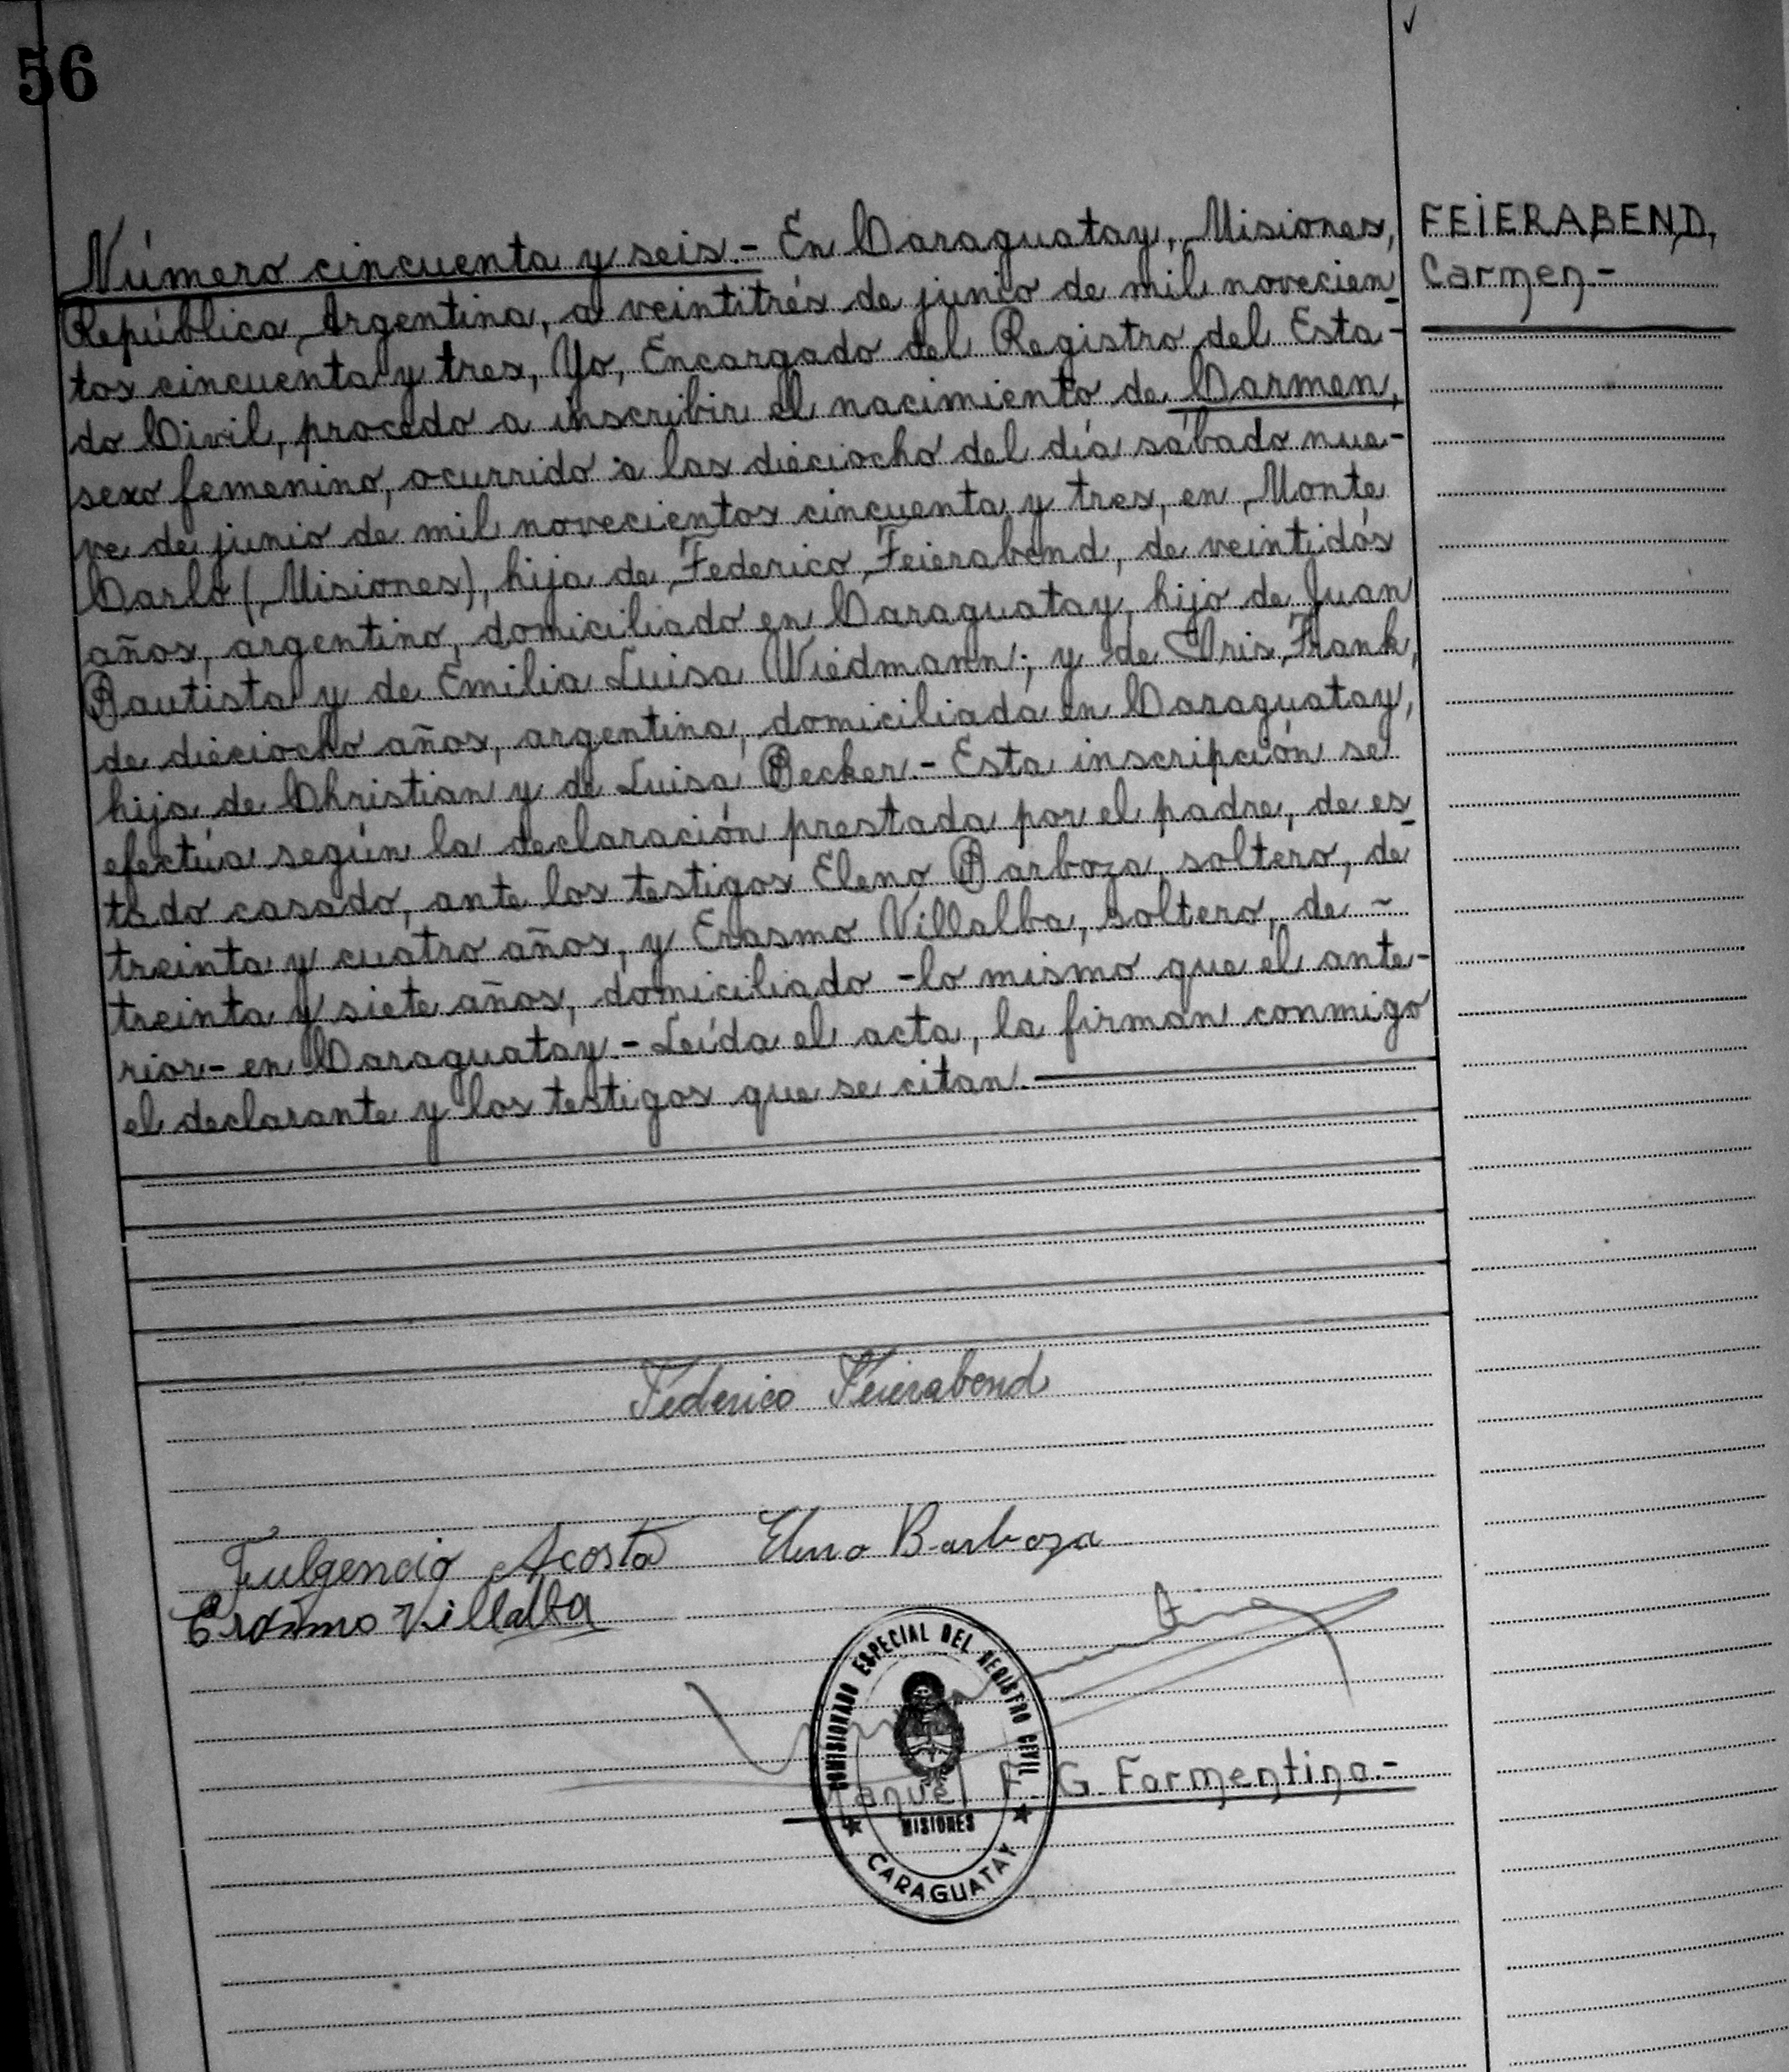 56
Número cincuenta y seis.- En Caraguatay, Misiones,
República Argentina, a veintitrés de junio de mil novecien-
tos cincuenta y tres, Yo, Encargado del Registro del Esta-
do Civil, procedo a inscribir el nacimiento de Carmen,
sexo femenino, ocurrido a las dieciocho del día sábado nue-
ve de junio de mil novecientos cincuenta y tres, en Monte
Carlo (Misiones), hija de Federico Feierabend, de veintidós
años, argentino, domiciliado en Caraguatay, hijo de Juan
Bautista y de Emilia Luisa Wiedmann; y de Iris Frank,
de dieciocho años, argentina, domiciliada en Caraguatay,
hija de Christian y de Luisa Becker.- Esta inscripción se
efectúa según la declaración prestada por el padre, de es-
tado casado, ante los testigos Eleno Barboza, soltero, de
treinta y cuatro años, y Erasmo Villalba, soltero, de -
treinta y siete años, domiciliado -lo mismo que el ante-
rior- en Caraguatay.- Leída el acta, la firman conmigo
el declarante y los testigos que se citan.
FEiERABEND,
Carmen.-
Federico Feierabend
Fulgencio Acosta Eleno Barboza
Erasmo Villalba
COMISIONADO ESPECIAL DEL REGISTRO CIVIL
Manuel F. G. Formentino.-
MISIONES
CARAGUATAY